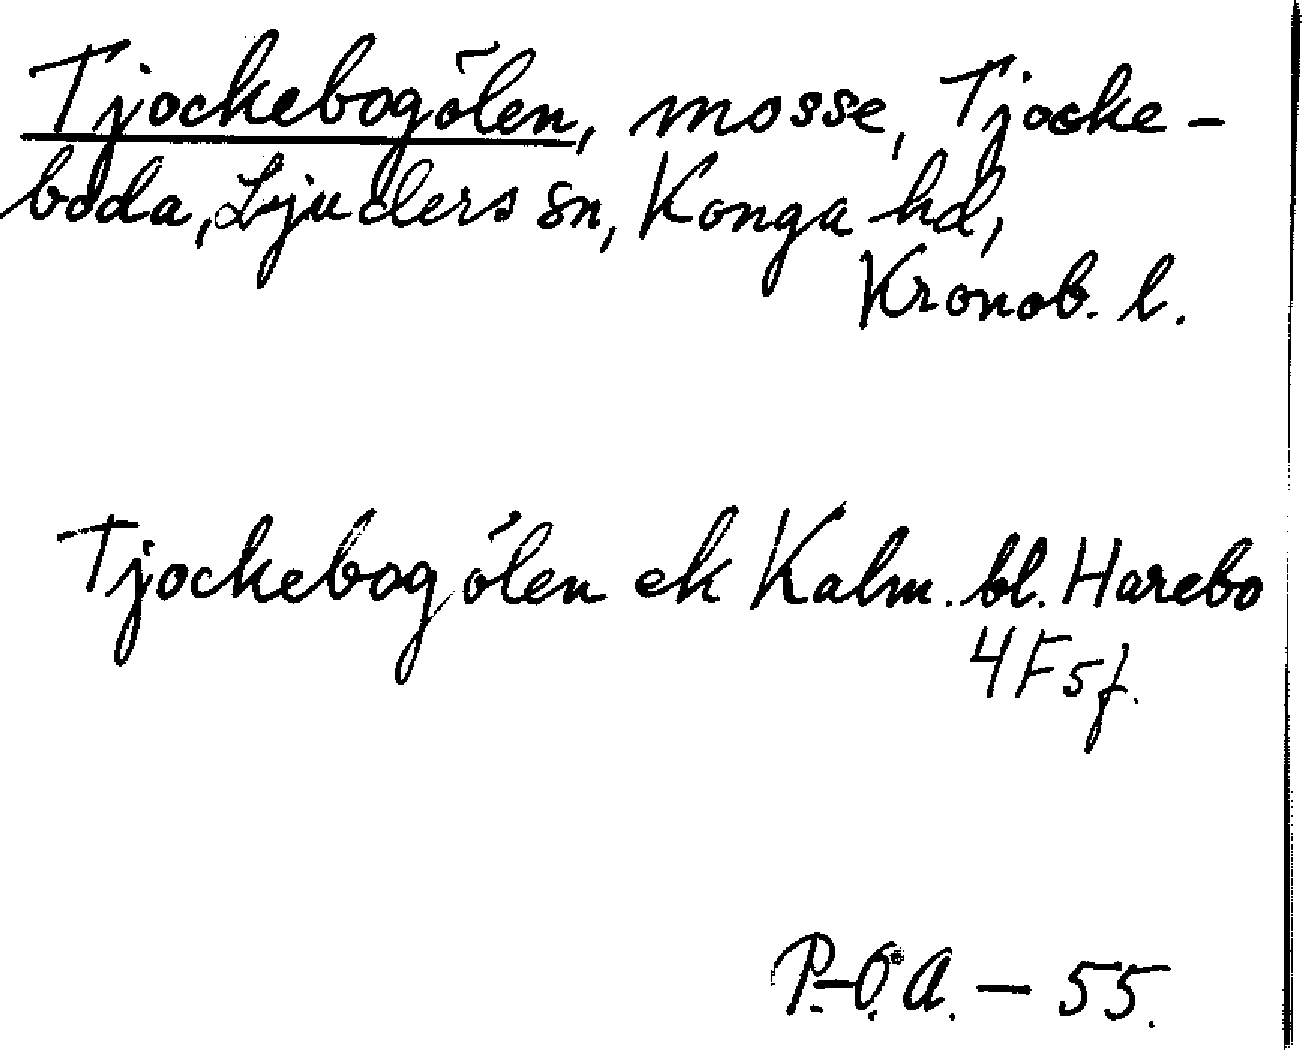 Tjockebogölen, mosse, Tjocke-
boda, Ljuders sn, Konga hd,
Kronob. l.
Tjockebogölen ek Kalm. bl. Harebo
4F5f.
P.-O. A. - 55.